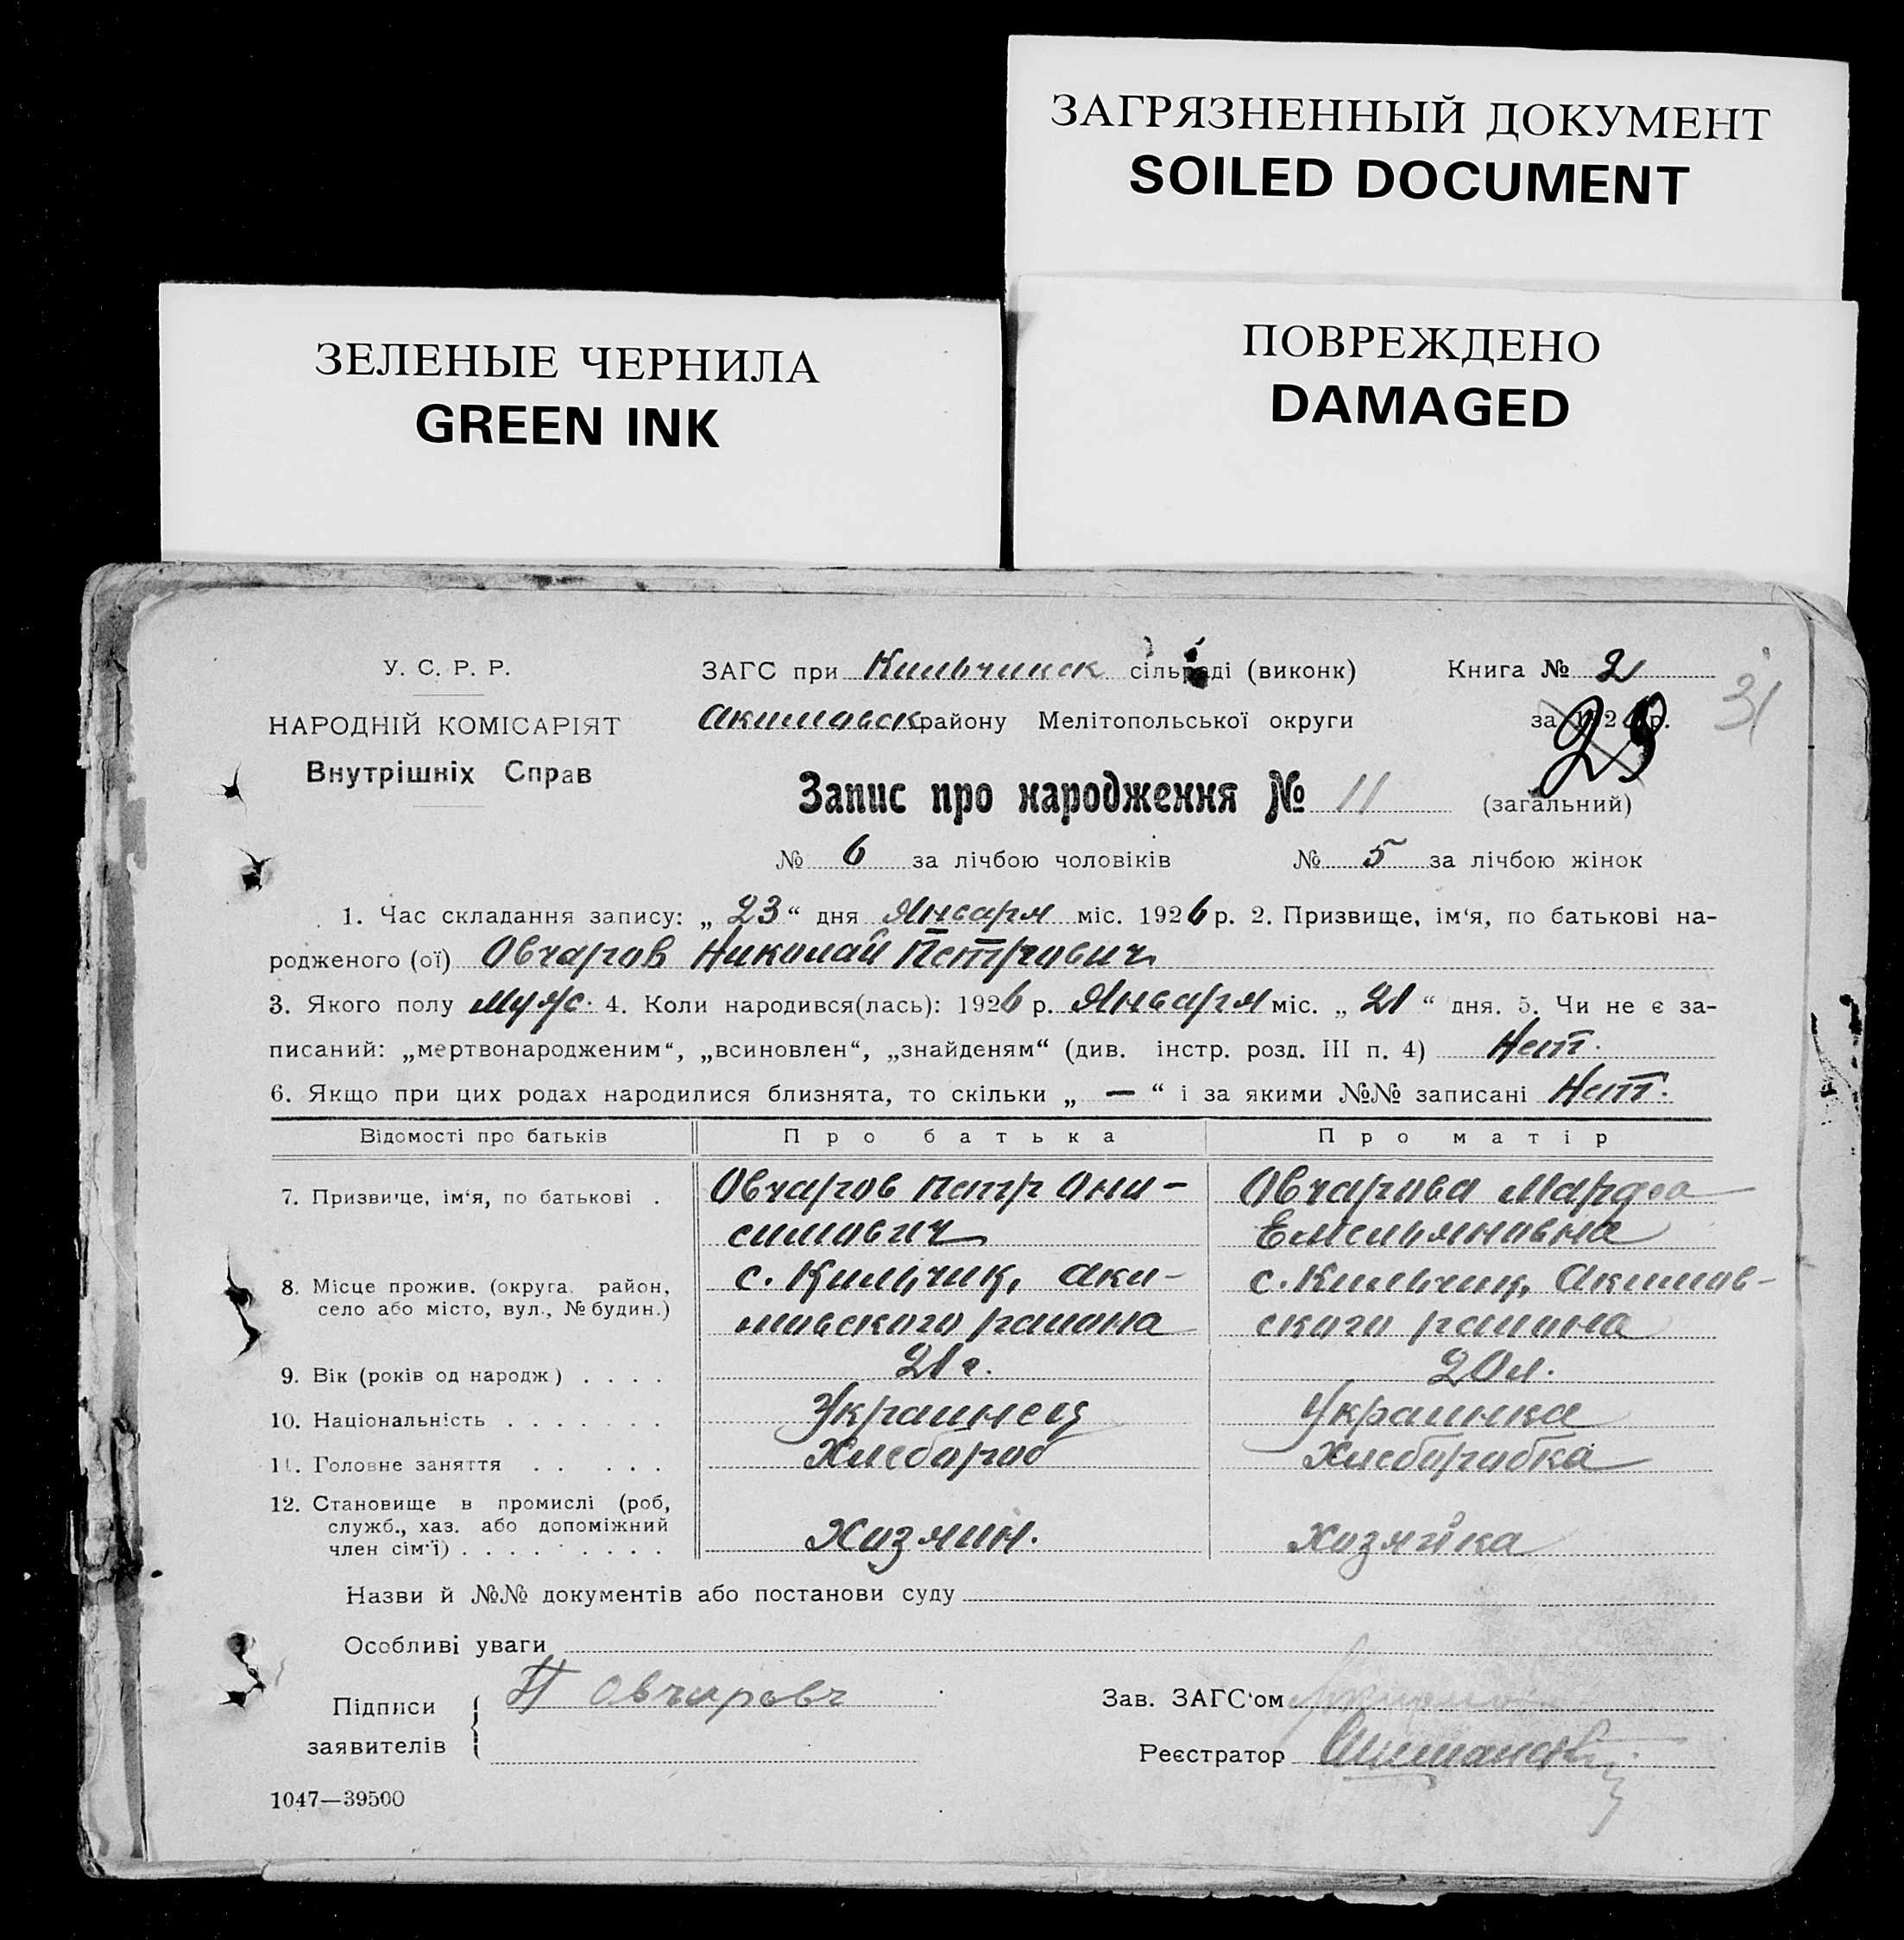 ЗАГРЯЗНЕННЫЙ ДОКУМЕНТ
SOILED DOCUMENT
ЗЕЛЕНЫЕ ЧЕРНИЛА
GREEN INK
ПОВРЕЖДЕНО
DAMAGED
У. С. Р. Р.
НАРОДНІЙ КОМІСАРІЯТ
Внутрішніх Справ
ЗАГС при Кильчинск сільраді (виконк) Книга № 2
31
Акимовск району Мелітопольської округи за 192 р.
29
Запис про народження № 11 (загальний)
№ 6 за лічбою чоловіків № 5 за лічбою жінок
1. Час складання запису: „ 23 “ дня Января міс. 1926 р. 2. Призвище, ім‘я, по батькові на-
родженого (ої) Овчаров Николай Петрович
3. Якого полу муж. 4. Коли народився(лась): 1926 р. Января міс. „ 21 “ дня. 5. Чи не є за-
писаний: „мертвонародженим“, „всиновлен“, „знайденям“ (див. інстр. розд. III п. 4) Нет.
6. Якщо при цих родах народилися близнята, то скільки „ — “ і за якими №№ записані Нет.
Відомості про батьків Про батька Про матір
7. Призвище, ім‘я, по батькові . Овчаров Петр Они- Овчарова Марфа
симович Емельяновна
8. Місце прожив. (округа, район, с. Кильчик, Аки- с. Кильчик, Акимов-
село або місто, вул., № будин.) мовского района ского района
9. Вік (років од народж) . . . . 21 г. 20 л.
10. Національність . . . . . . . Украинец Украинка
11. Головне заняття . . . . . Хлебороб Хлеборобка
12. Становище в промислі (роб,
служб., хаз. або допоміжний
член сім‘ї) . . . . . . . . . Хозяин. Хозяйка
Назви й №№ документів або постанови суду
Особливі уваги
Підписи П Овчаровъ Зав. ЗАГС‘ом
заявителів Реєстратор
1047—39500